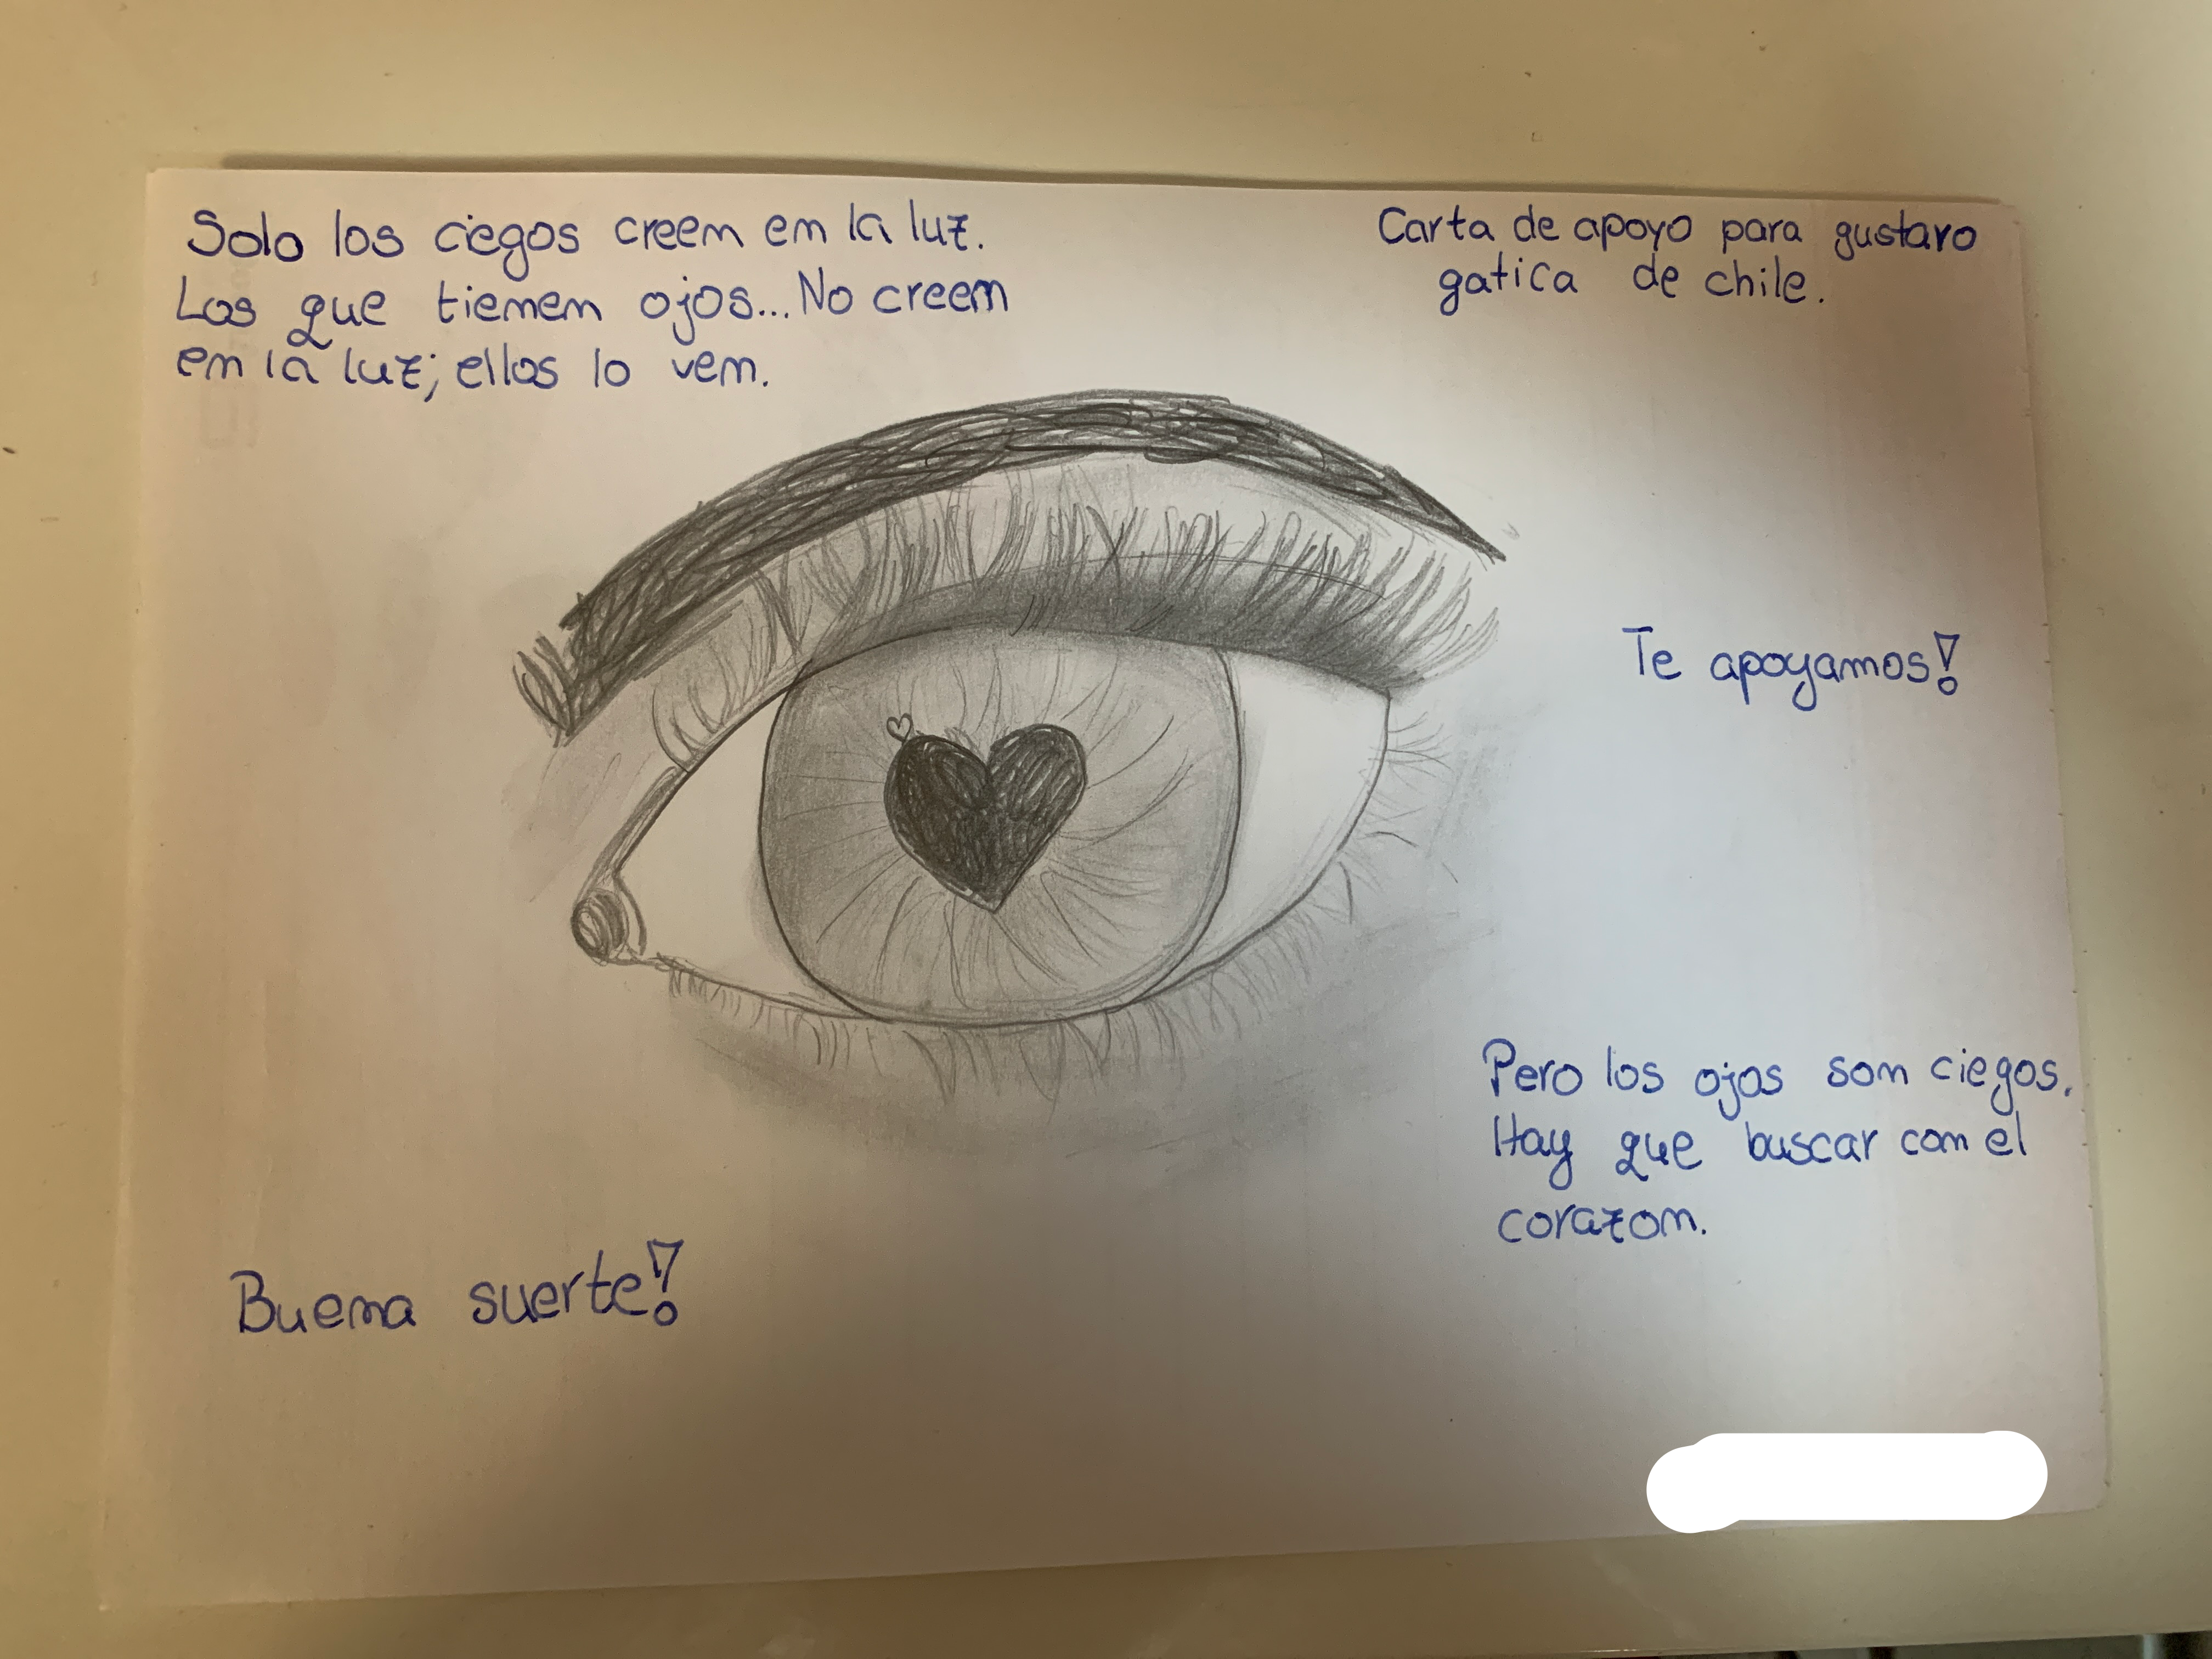 Solo los ciegos creem em la luz.
Los que tiemem ojos... No creem
em la luz; ellos lo vem.
Carta de apoyo para gustavo
gatica de chile.
Te apoyamos!
Pero los ojos som ciegos.
Hay que buscar com el
corazom.
Buema suerte!